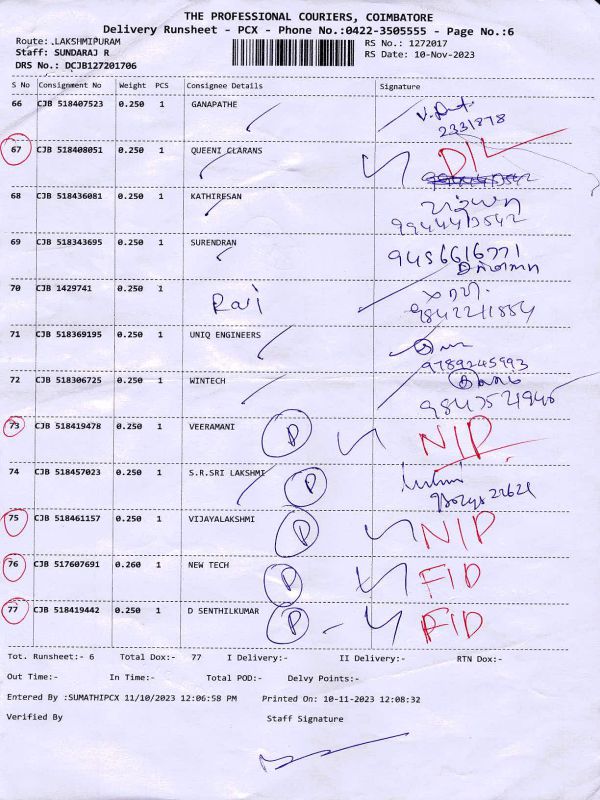 THE PROFESSIONAL COURIERS, COIMBATORE
Delivery Runsheet - PCX - Phone No.:0422-3505555 - Page No.:6
Route: .LAKSHMIPURAM RS No.: 1272017
Staff: SUNDARAJ R RS Date: 10-Nov-2023
DRS No.: DCJB127201706
S No Consignment No Weight PCS Consignee Details Signature
66 CJB 518407523 0.250 1 GANAPATHE
2331878
67 CJB 518408051 0.250 1 QUEENI CLARANS D/L
68 CJB 518436081 0.250 1 KATHIRESAN
9944413542
69 CJB 518343695 0.250 1 SURENDRAN 9456616771
70 CJB 1429741 0.250 1 Ravi
9842211854
71 CJB 518369195 0.250 1 UNIQ ENGINEERS
9789245993
72 CJB 518306725 0.250 1 WINTECH
73 CJB 518419478 0.250 1 VEERAMANI P N/D
74 CJB 518457023 0.250 1 S.R.SRI LAKSHMI P
75 CJB 518461157 0.250 1 VIJAYALAKSHMI P N/D
76 CJB 517607691 0.260 1 NEW TECH P F/D
77 CJB 518419442 0.250 1 D SENTHILKUMAR P F/D
Tot. Runsheet:- 6 Total Dox:- 77 I Delivery:- II Delivery:- RTN Dox:-
Out Time:- In Time:- Total POD:- Delvy Points:-
Entered By :SUMATHIPCX 11/10/2023 12:06:58 PM Printed On: 10-11-2023 12:08:32
Verified By Staff Signature